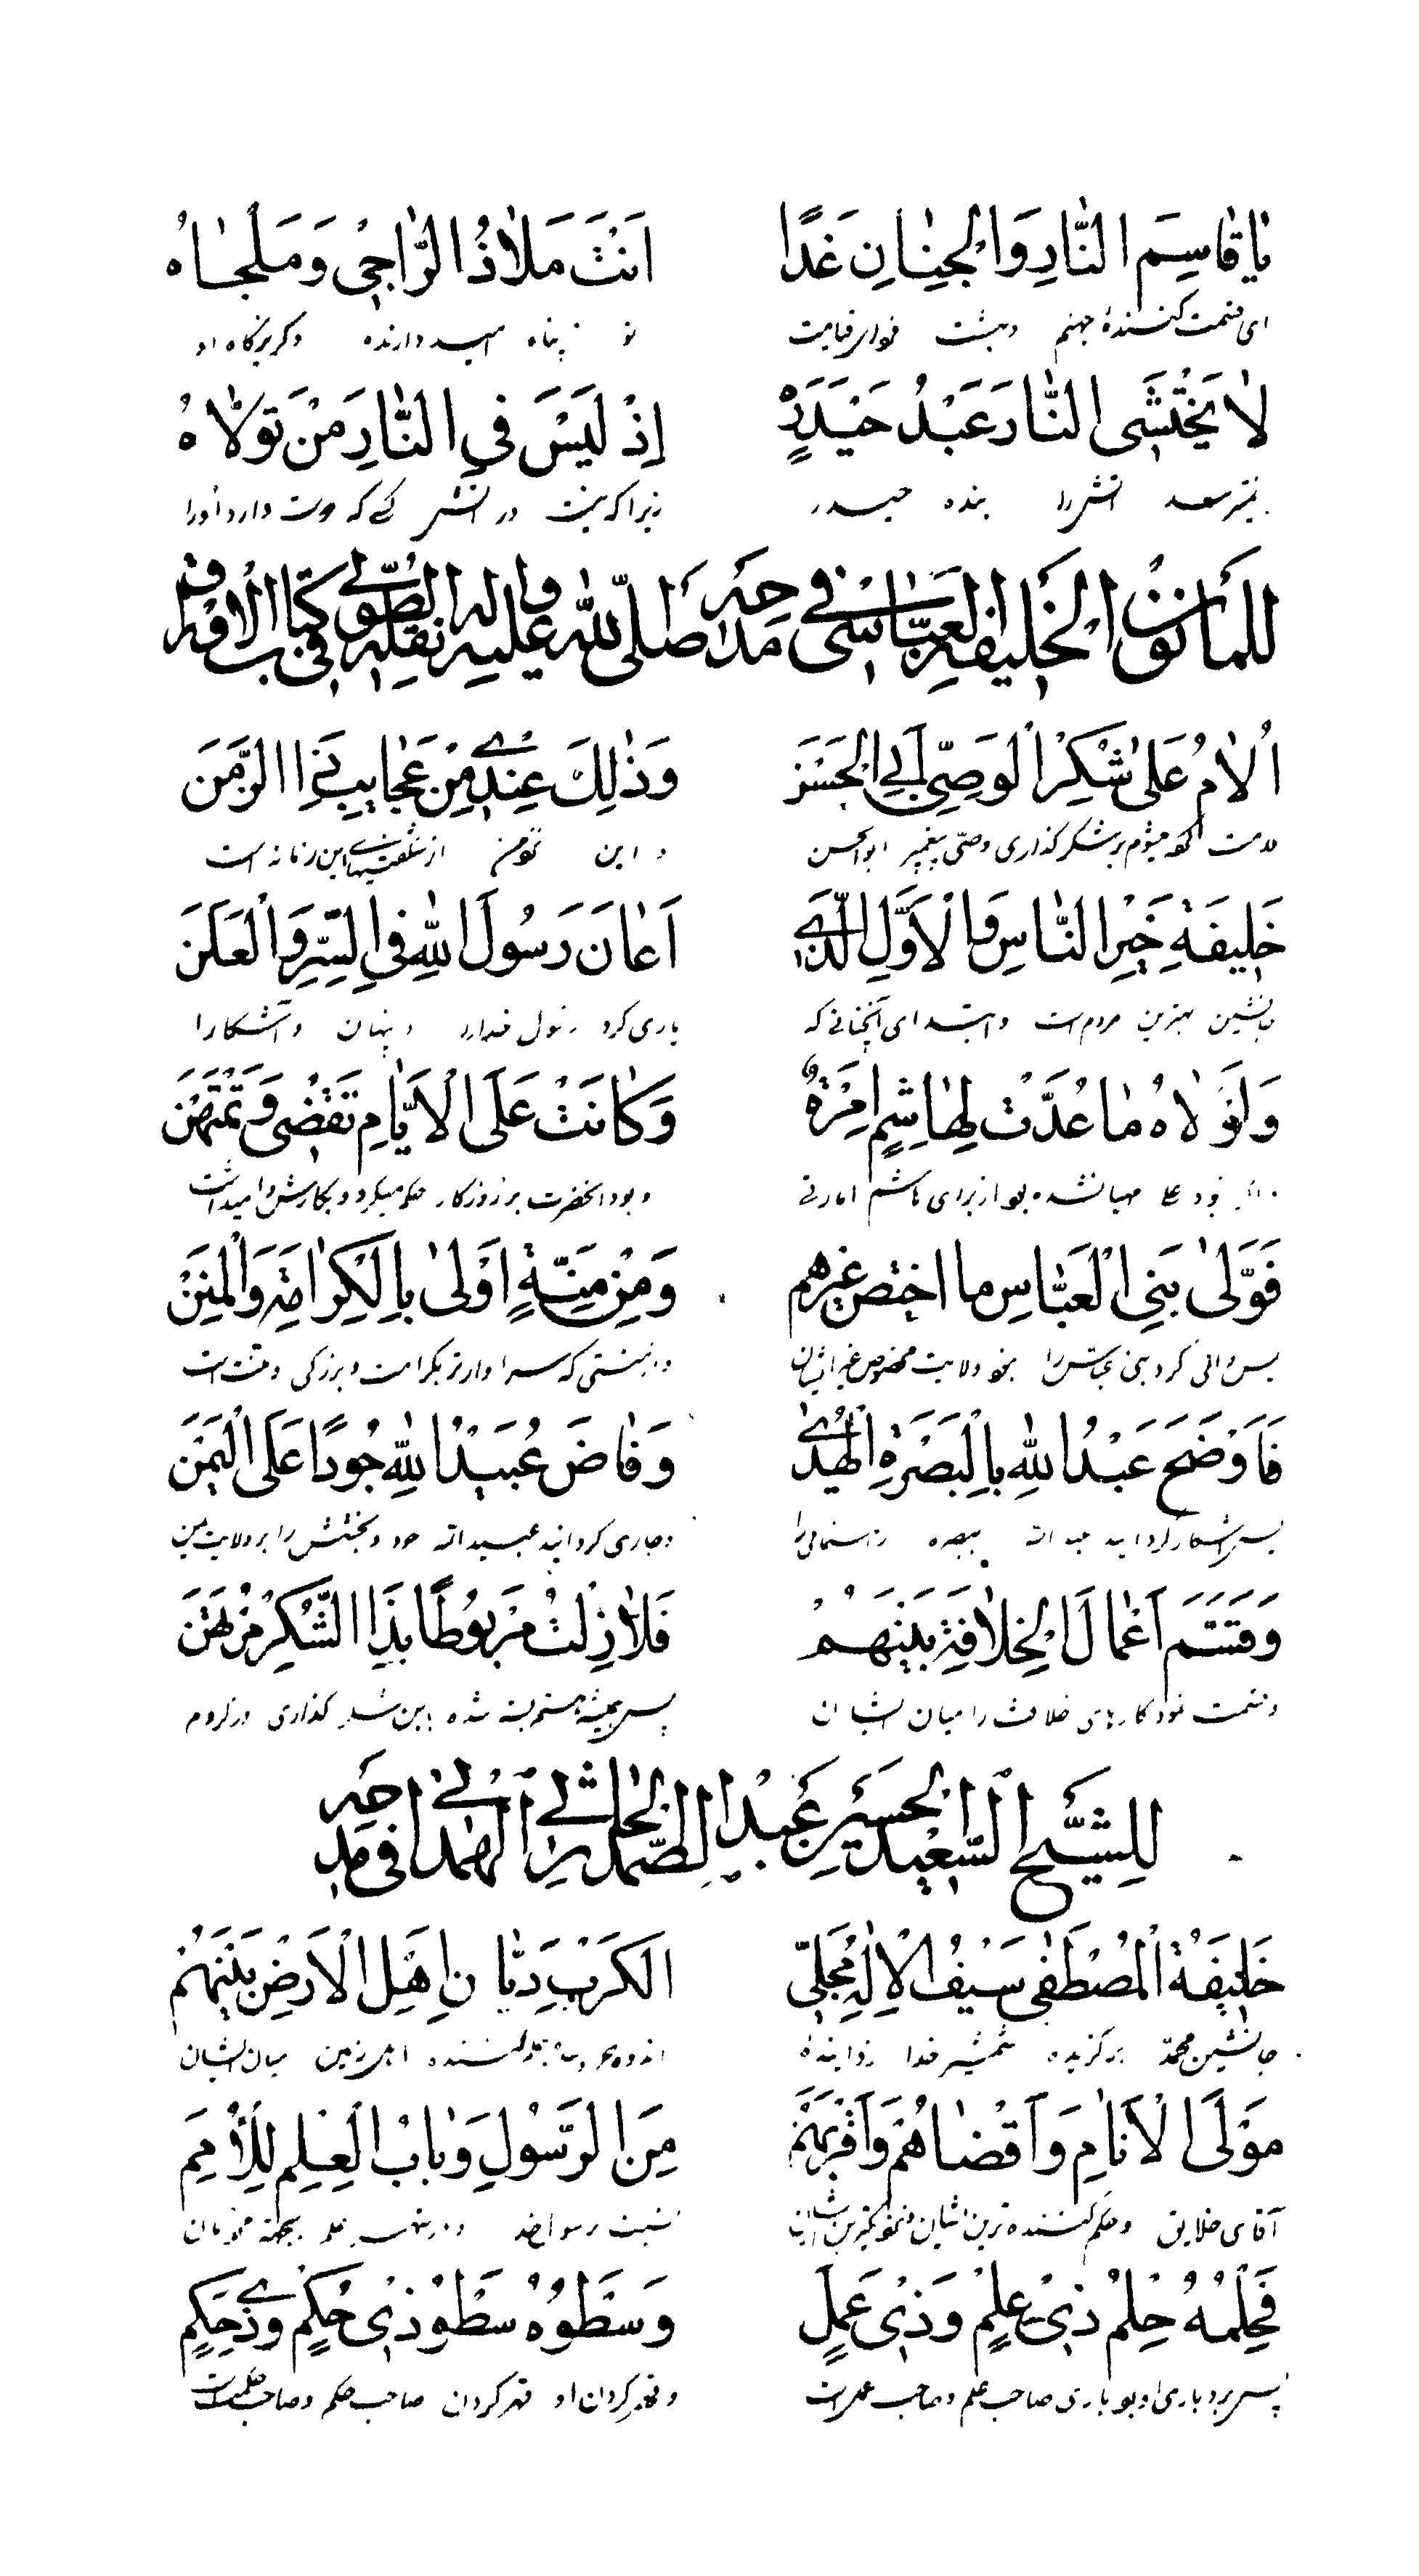 يَا قَاسِمَ النَّارِ وَالْجِنَانِ غَدًا اَنْتَ مَلَاذُ الرَّاجِي وَمَلْجَاهُ
ای قسمت کنندهٔ جهنم و بهشت فردای قیامت تو پناه امید دارنده و گریزگاه او
لَا يَخْتَشَى النَّارَ عَبْدُ حَيْدَرَةٍ اِذْ لَيْسَ فِي النَّارِ مَنْ تَوَلَّاهُ
نمیترسد اتش را بنده حیدر زیرا که نیست در اتش کسی که دوست دارد اورا
للمأمون الخليفة العباسى في مدحه صلى الله عليه واله نقله الصولي في كتاب الاوراق
اُلَامُ عَلَى شُكْرِ الْوَصِيِّ اَبِي الْحَسَنِ وَذٰلِكَ عِنْدِي مِنْ عَجَايِبِ ذَا الزَّمَنَ
ملامت کرده میشوم بر شکر گذاری وصی پیغمبر ابوالحسن و این نزد من از شگفتیهای این زمانه است
خَلِيفَةِ خَيْرِ النَّاسِ وَالْاَوَّلِ الَّذِي اَعَانَ رَسُولَ اللّٰهِ فِي السِّرِّ وَالْعَلَنَ
جانشین بهترین مردم است و ابتدای آنچنانی که یاری کرد رسول خدارا در پنهان و آشکارا
وَلَوْلَاهُ مَا عُدَّتْ لِهَاشِمٍ اِمْرَةٌ وَكَانَتْ عَلَى الْاَيَّامِ تَقْضِي وَتَمْتَهَنَ
مهیا نشده بود از برای هاشم امارتی و بود انحضرت بر روزگار حکم میکرد و بکارش وامیداشت
فَوَلَّى بَنِي الْعَبَّاسِ مَا اخْتَصَّ غَيْرَهُمْ وَمِنْ مِنَّةٍ اَوْلَى بِالْكِرَامَةِ وَالْمِنَنْ
پس والی کرد بنی عباس را بخو ولایت مخصوص غیر ایشان و از منتی که سزاوارتر بکرامت و بزرگی و منت است
فَاَوْضَحَ عَبْدُ اللّٰهِ بِالْبَصْرَةِ الْهُدَى وَفَاضَ عُبَيْدُ اللّٰهِ جُودًا عَلَى الْيَمَنَ
پس اشکار گردانید عبد الله ببصره راهنمائی را و جاری گردانید عبیدالله جود و بخشش را بر ولایت یمن
وَقَسَّمَ اَعْمَالَ الْخِلَافَةِ بَيْنَهُمْ فَلَا زِلْتُ مَرْبُوطًا بِذَا الشُّكْرِ مُرْتَهَنَ
و قسمت نمود کارهای خلافت را میان ایشان پس همیشه هستم بسته شده باین شکر گذاری در گروم
لِلشَّيْخِ السَّعِيدِ الحسين بن عَبْدِ الصَّمَدِ الحارثي الهمداني في مدحه
خَلِيفَةُ الْمُصْطَفَى سَيْفُ الْاِلٰهِ مُجَلِّي الْكَرْبِ دَيَّانِ اَهْلِ الْاَرْضِ بَيْنَهُمْ
جانشین محمد برگزیده شمشیر خدا زداینده اهل زمین میان ایشان
مَوْلَى الْاَنَامِ وَاَقْضَاهُمْ وَاَقْرَبُهُمْ مِنَ الرَّسُولِ وَبَابُ الْعِلْمِ لِلْاُمَمِ
آقای خلایق و حکم کننده ترین ایشان و نزدیکترین ایشان نسبت برسول خدا و در شهر علم بجهة مردمان
فَحِلْمُهُ حِلْمُ ذِي عِلْمٍ وَذِي عَمَلٍ وَسَطْوُهُ سَطْوُ ذِي حُكْمٍ وَذِي حِكَمٍ
پس بردباری او بردباری صاحب علم و صاحب عمل است و قهر کردن او قهر کردن صاحب حکم و صاحب حکمت است